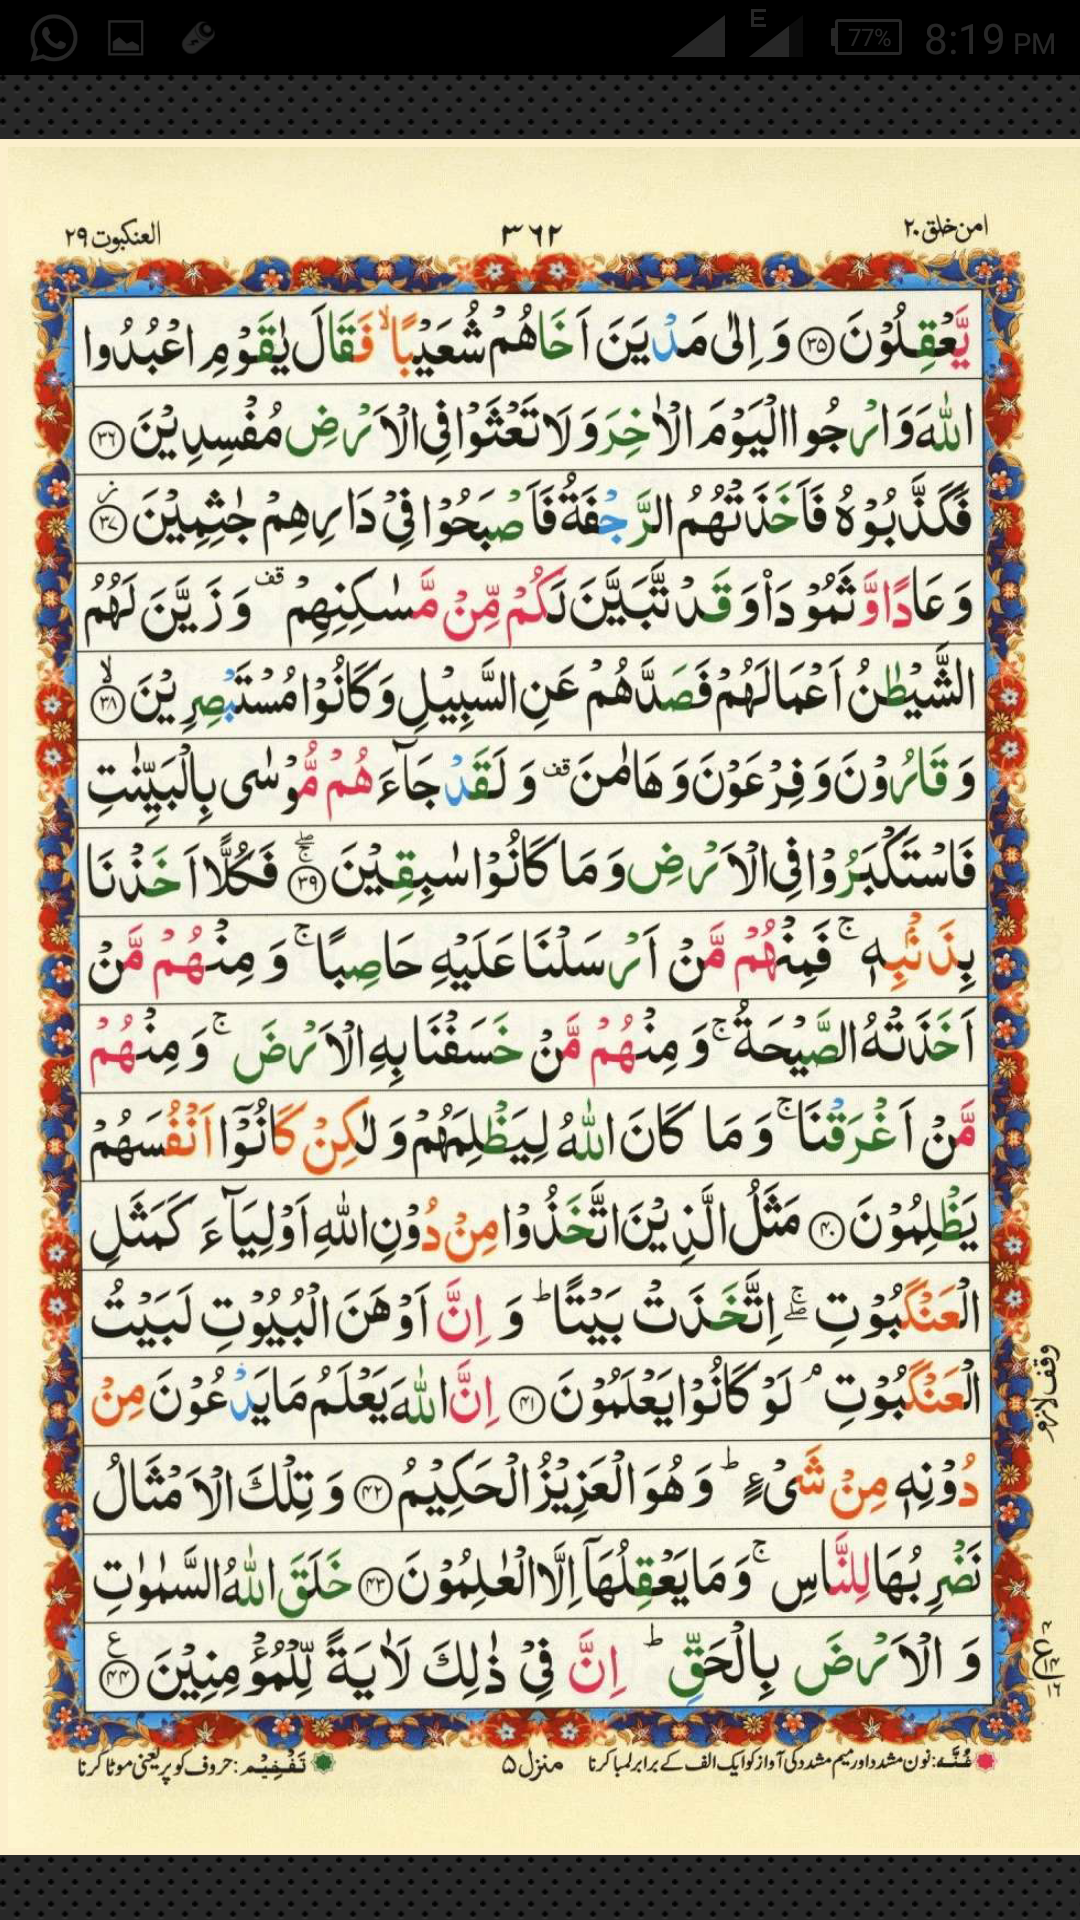 E 77% 8:19 PM
امن خلق ۲۰ ۳۶۲ العنکبوت ۲۹
يَّعۡقِلُوۡنَ ﴿۳۵﴾ وَ اِلٰى مَدۡيَنَ اَخَاهُمۡ شُعَيۡبًا ۙ فَقَالَ يٰقَوۡمِ اعۡبُدُوا
اللّٰهَ وَ ارۡجُوا الۡيَوۡمَ الۡاٰخِرَ وَ لَا تَعۡثَوۡا فِى الۡاَرۡضِ مُفۡسِدِيۡنَ ﴿۳۶﴾
فَكَذَّبُوۡهُ فَاَخَذَتۡهُمُ الرَّجۡفَةُ فَاَصۡبَحُوۡا فِىۡ دَارِهِمۡ جٰثِمِيۡنَ ۫ ﴿۳۷﴾
وَ عَادًا وَّ ثَمُوۡدَا۟ وَ قَدۡ تَّبَيَّنَ لَكُمۡ مِّنۡ مَّسٰكِنِهِمۡ قف وَ زَيَّنَ لَهُمُ
الشَّيۡطٰنُ اَعۡمَالَهُمۡ فَصَدَّهُمۡ عَنِ السَّبِيۡلِ وَ كَانُوۡا مُسۡتَبۡصِرِيۡنَ ۙ ﴿۳۸﴾
وَ قَارُوۡنَ وَ فِرۡعَوۡنَ وَ هَامٰنَ قف وَ لَقَدۡ جَآءَهُمۡ مُّوۡسٰى بِالۡبَيِّنٰتِ
فَاسۡتَكۡبَرُوۡا فِى الۡاَرۡضِ وَ مَا كَانُوۡا سٰبِقِيۡنَ ۚۖ ﴿۳۹﴾ فَكُلًّا اَخَذۡنَا
بِذَنۡۢبِهٖ ۚ فَمِنۡهُمۡ مَّنۡ اَرۡسَلۡنَا عَلَيۡهِ حَاصِبًا ۚ وَ مِنۡهُمۡ مَّنۡ
اَخَذَتۡهُ الصَّيۡحَةُ ۚ وَ مِنۡهُمۡ مَّنۡ خَسَفۡنَا بِهِ الۡاَرۡضَ ۚ وَ مِنۡهُمۡ
مَّنۡ اَغۡرَقۡنَا ۚ وَ مَا كَانَ اللّٰهُ لِيَظۡلِمَهُمۡ وَ لٰكِنۡ كَانُوۡۤا اَنۡفُسَهُمۡ
يَظۡلِمُوۡنَ ﴿۴۰﴾ مَثَلُ الَّذِيۡنَ اتَّخَذُوۡا مِنۡ دُوۡنِ اللّٰهِ اَوۡلِيَآءَ كَمَثَلِ
الۡعَنۡكَبُوۡتِ ۚۖ اِتَّخَذَتۡ بَيۡتًا ؕ وَ اِنَّ اَوۡهَنَ الۡبُيُوۡتِ لَبَيۡتُ
الۡعَنۡكَبُوۡتِ ۘ لَوۡ كَانُوۡا يَعۡلَمُوۡنَ ﴿۴۱﴾ اِنَّ اللّٰهَ يَعۡلَمُ مَا يَدۡعُوۡنَ مِنۡ
وقف لازم
دُوۡنِهٖ مِنۡ شَىۡءٍ ؕ وَ هُوَ الۡعَزِيۡزُ الۡحَكِيۡمُ ﴿۴۲﴾ وَ تِلۡكَ الۡاَمۡثَالُ
نَضۡرِبُهَا لِلنَّاسِ ۚ وَ مَا يَعۡقِلُهَاۤ اِلَّا الۡعٰلِمُوۡنَ ﴿۴۳﴾ خَلَقَ اللّٰهُ السَّمٰوٰتِ
وَ الۡاَرۡضَ بِالۡحَقِّ ؕ اِنَّ فِىۡ ذٰلِكَ لَاٰيَةً لِّلۡمُؤۡمِنِيۡنَ ﴿۴۴﴾ ع
ع ۴ ۱۴ ۱۶
غُنَّه: نون مشدد اور میم مشدد کی آواز کو ایک الف کے برابر لمبا کرنا منزل ۵ تَفۡخِیۡم: حروف کو پر یعنی موٹا کرنا